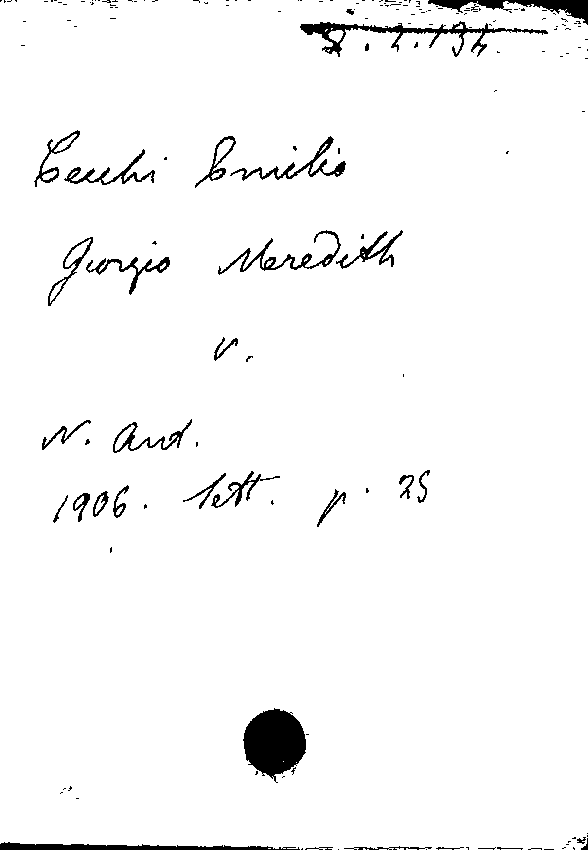 Cecchi Emilio
Giorgio Meredith
v.
N. Ant.
1906. Sett. p. 25